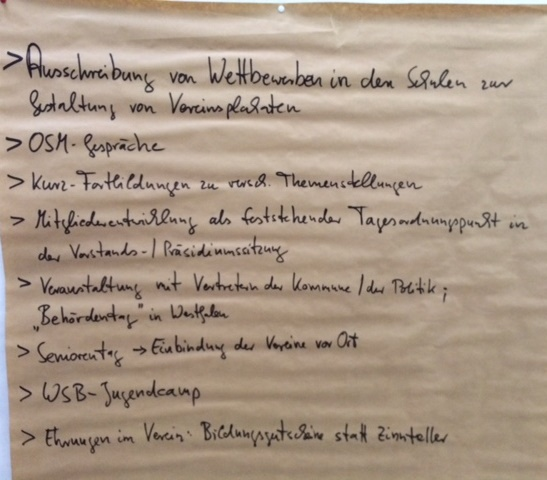 > Ausschreibung von Wettbewerben in den Schulen zur
Gestaltung von Vereinsplakaten
> OSM-Gespräche
> Kurz-Fortbildungen zu versch. Themenstellungen
> Mitgliederentwicklung als feststehender Tagesordnungspunkt in
der Vorstands-/Präsidiumssitzung
> Veranstaltung mit Vertretern der Kommune / der Politik;
"Behördentag" in Westfalen
> Seniorentag → Einbindung der Vereine vor Ort
> WSB-Jugendcamp
> Ehrungen im Verein: Bildungsgutscheine statt Zinnteller